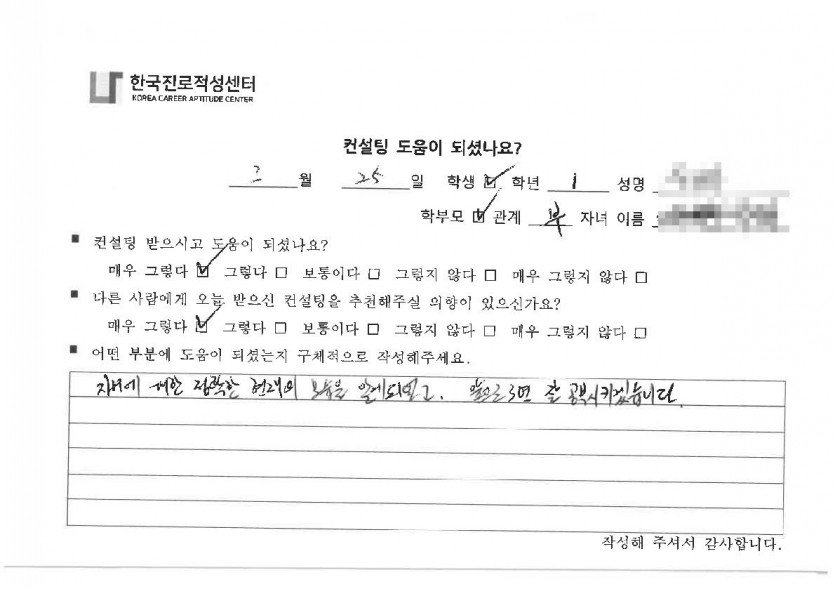 한국진로적성센터
KOREA CAREER APTITUDE CENTER
컨설팅 도움이 되셨나요?
월 25 일 학생 ☑ 학년 1 성명
학부모 ☑ 관계 부 자녀 이름
■ 컨설팅 받으시고 도움이 되셨나요?
매우 그렇다 ☑ 그렇다 □ 보통이다 □ 그렇지 않다 □ 매우 그렇지 않다 □
■ 다른 사람에게 오늘 받으신 컨설팅을 추천해주실 의향이 있으신가요?
매우 그렇다 ☑ 그렇다 □ 보통이다 □ 그렇지 않다 □ 매우 그렇지 않다 □
■ 어떤 부분에 도움이 되셨는지 구체적으로 작성해주세요.
자녀에 대한 정확한 현재의 모습을 알게되었고. 앞으로 3년 잘 공부시키겠습니다.
작성해 주셔서 감사합니다.